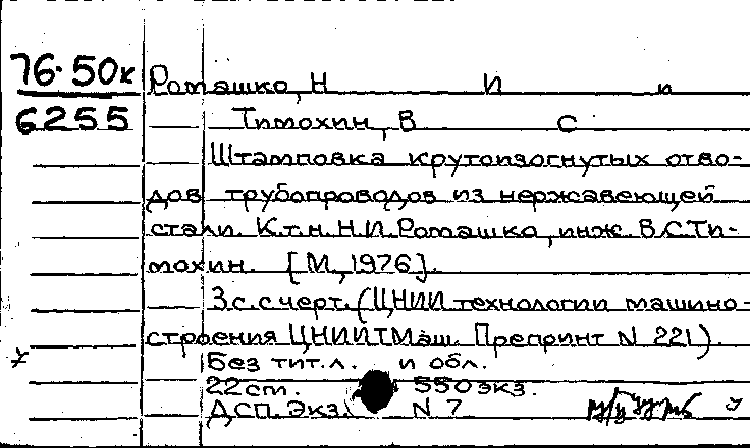 76-50к Ромашко, Н И и
6255 Тимохин, В С
Штамповка крутоизогнутых отво-
дов трубопроводов из нержавеющей
стали. К.т.н. Н.И. Ромашко, инж. В.С. Ти-
мохин. [М., 1976].
3 с. с черт. (ЦНИИ технологии машино-
строения ЦНИИТМаш. Препринт N 221).
Без тит. л. и обл.
22 cm. 550 экз.
ДСП. Экз. N 7